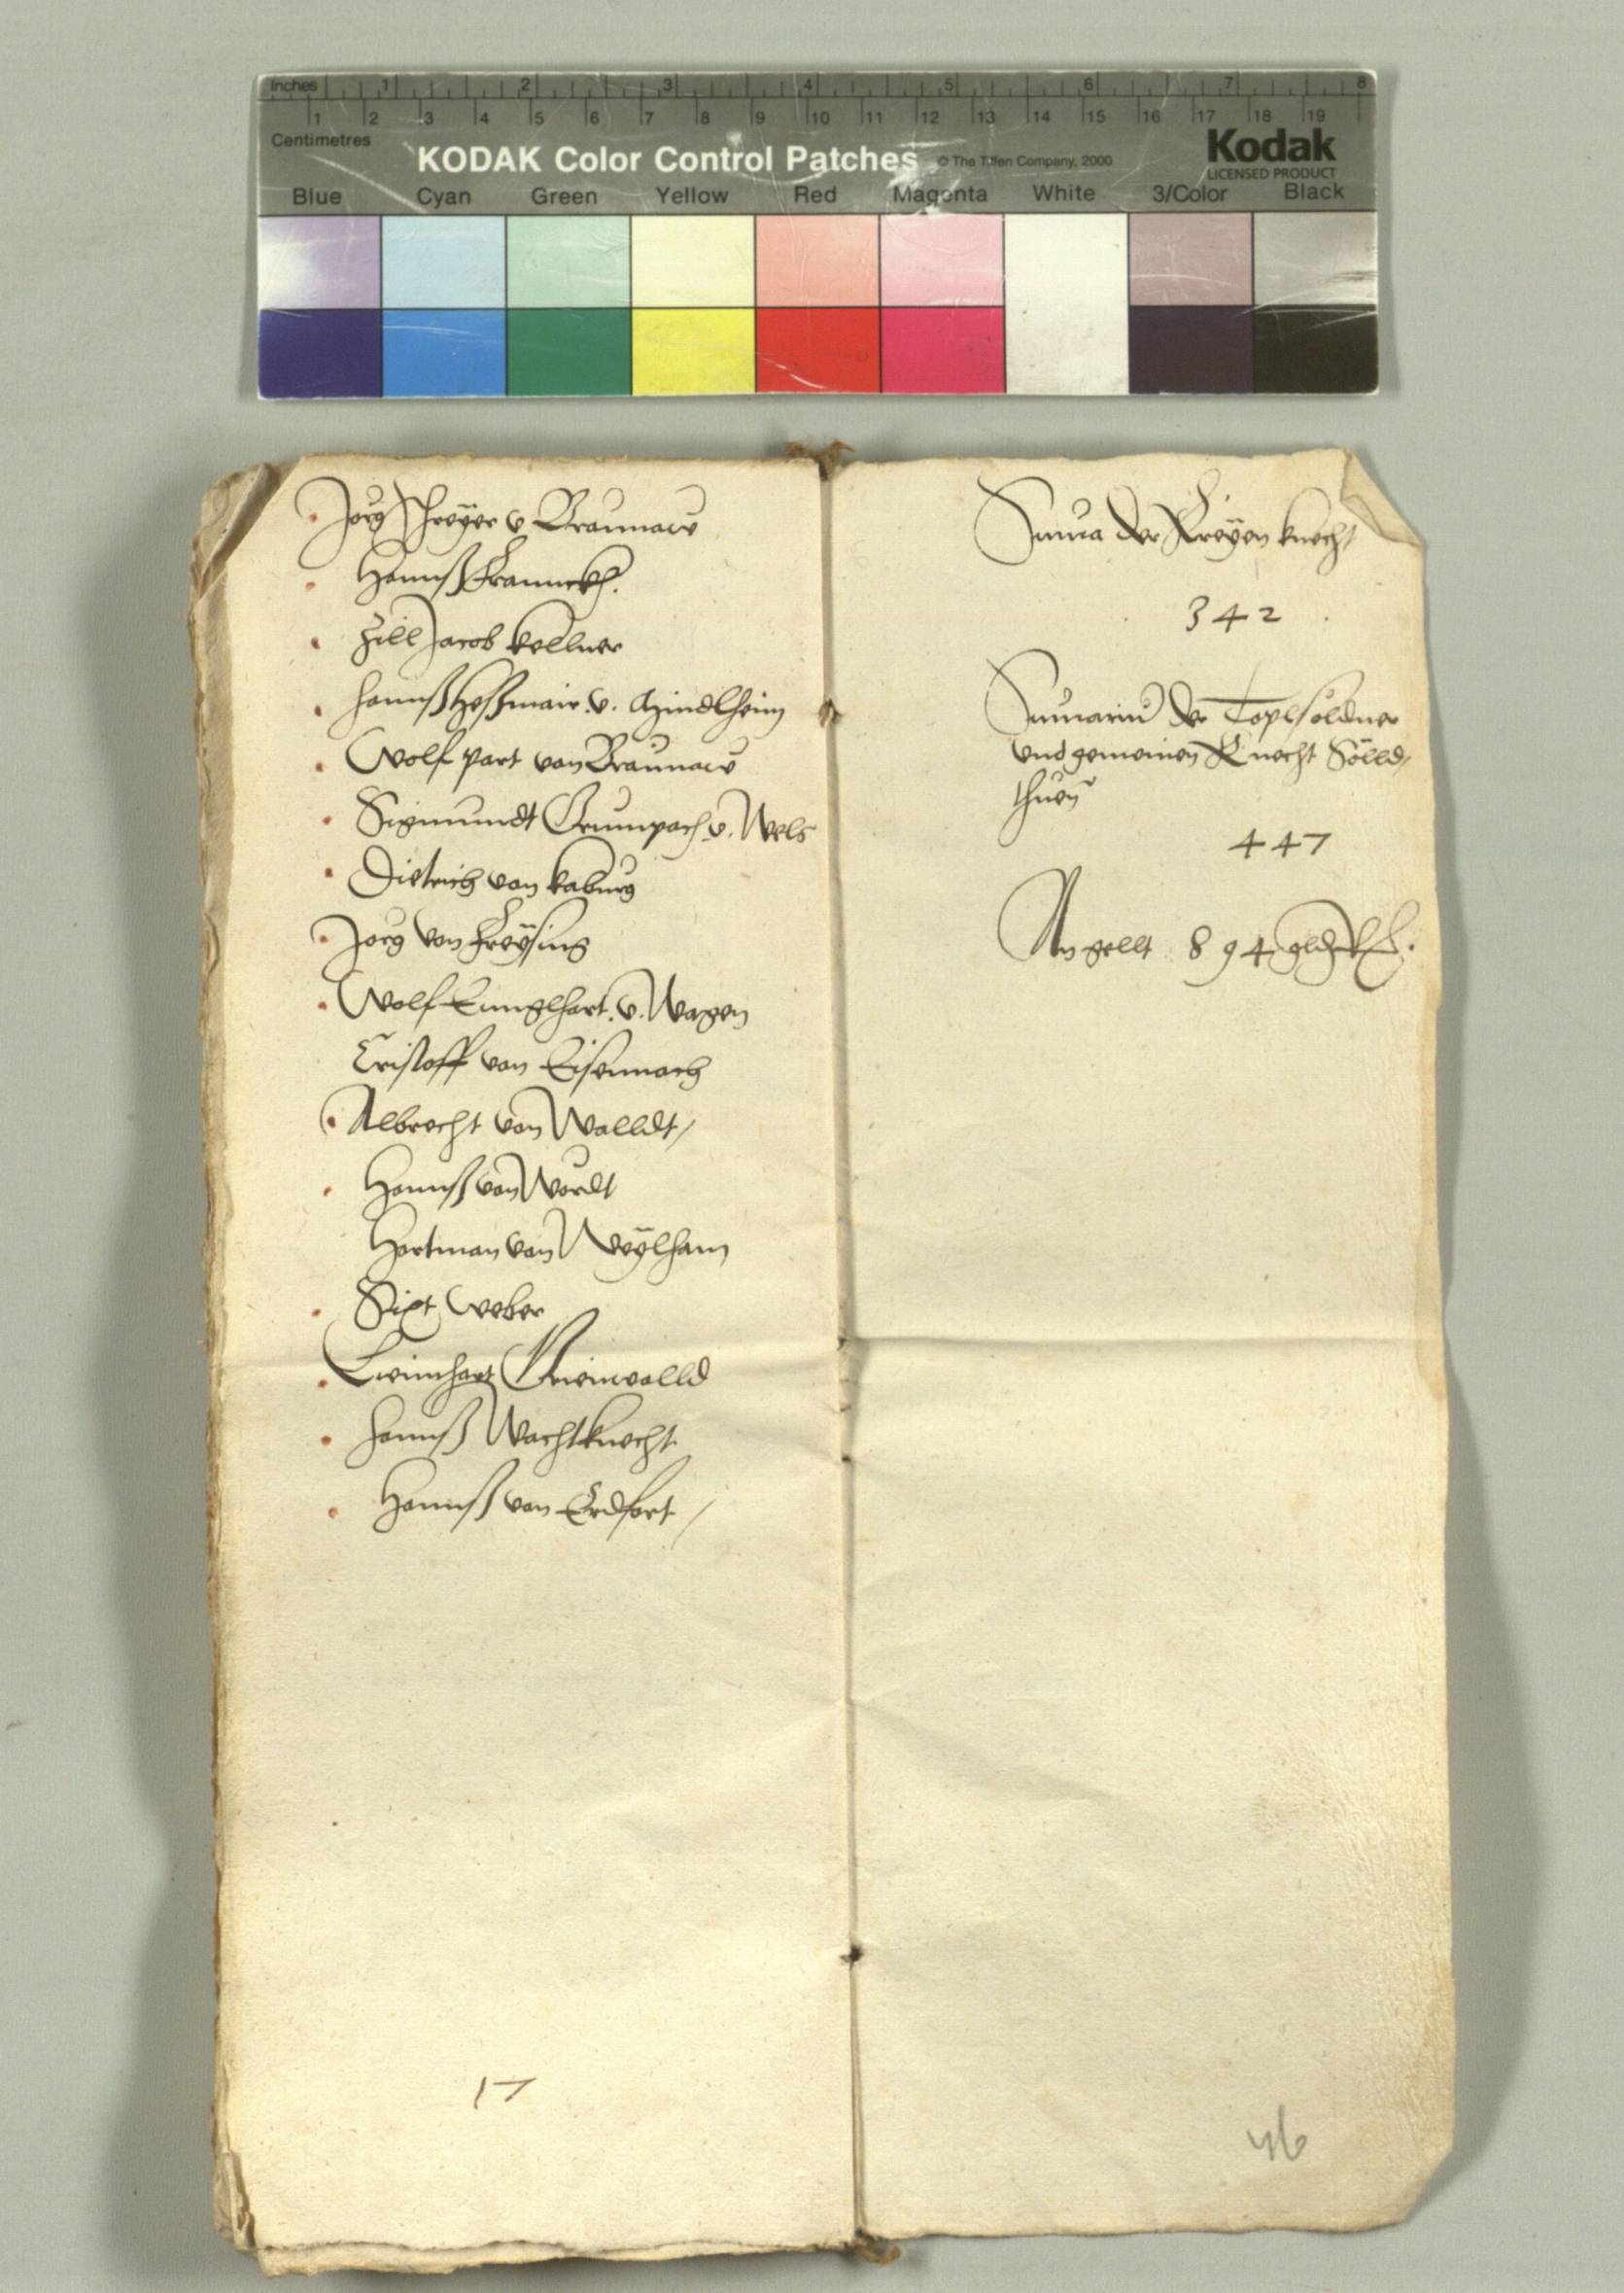 Inches 1 2 3 4 5 6 7 8
1 2 3 4 5 6 7 8 9 10 11 12 13 14 15 16 17 18 19
Centimetres
KODAK Color Control Patches © The Tiffen Company, 2000 Kodak
LICENSED PRODUCT
Blue Cyan Green Yellow Red Magenta White 3/Color Black
Jorg Schreÿer v Braunaw
Hannß Franneckh.
Zill Jacob kellner
hannß Heßmair. v. Mindlheim
Wolf part von Braunaw
Sigmundt Crumpach. v. Wels
Dietrich von kaburg
Jorg von Freÿsing
Wolf Eunglhart. v. Wagen
Cristoff von Eisennach
Albrecht von Walldt /
Hannß von Wordt
Hartman von Weÿlham
Sixt Weber
Leinhart Greinwalld
hannß Wachtknecht
Hannß von Erdfort /
17
Suma der Freÿen knecht
342
Sumariu der Toplsöldner
und gemeinen Knecht Sölld /
thuen
447
An gellt 894 gld
46